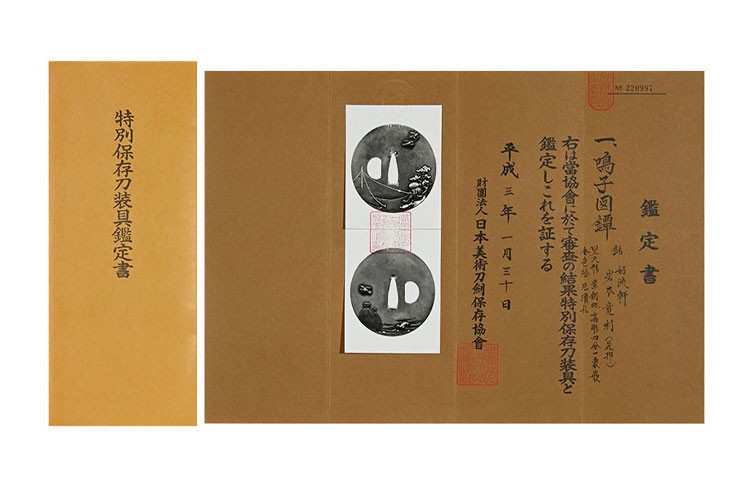 特別保存刀装具鑑定書
№ 220997
鑑定書
一、鳴子図鐔
銘 好流軒
岩本寛利(花押)
右は當協會に於て審査の結果特別保存刀装具と
鑑定しこれを証する
平成三年一月三十日
財團法人 日本美術刀剣保存協會